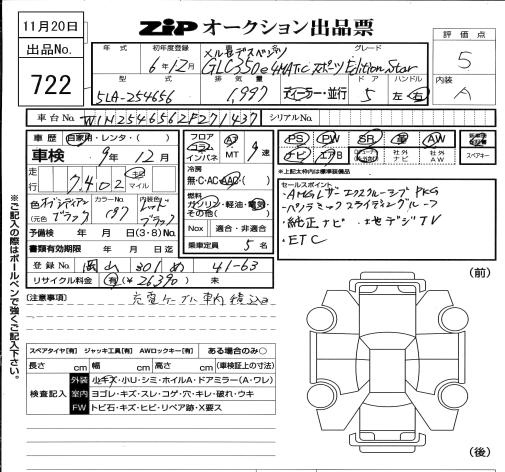 11月20日
出品No.
722
ZIP オークション出品票
評価点
5
内装
A
年式 初年度登録 車名 グレード
6年12月 メルセデスベンツ GLC350e 4MATIC スポーツ Edition Star
型式 排気量 ドア ハンドル
5LA-254656 1,997 ディーラー・並行 5 左・右
車台No. W1N2546562F271437 シリアルNo.
車歴 自家用・レンタ・( )
車検 9年12月
走行 7,402 キロ マイル
色 オブシディアンブラック (元色)
カラーNo. 197
内装色 レッド ブラック
予備検 年 月 日(3・8)No.
書類有効期限 年 月 日迄
登録No. 岡山 301 め 41-63
リサイクル料金 有(¥26,390) 未
フロア コラム インパネ
A7 MT 9速
冷房 無・C・AC・AAC
燃料 ガソリン・軽油・電気・その他( )
Nox 適合・非適合
乗車定員 5名
PS PW SR 革 AW
ナビ エアB 社外ナビ 社外AW スペアキー
*上記太枠内は標準装備品
セールスポイント
・AMGレザーエクスクルーシブPKG
・パノラミックスライディングルーフ
・純正ナビ ・地デジTV
・ETC
(注意事項) 充電ケーブル車内積込
スペアタイヤ[有] ジャッキ工具[有] AWロックキー[有] ある場合のみ○
長さ cm 幅 cm 高さ cm (車検証上の寸法)
検査記入
外装 小キズ・小U・シミ・ホイルA・ドアミラー(A・ワレ)
室内 ヨゴレ・キズ・スレ・コゲ・穴・キレ・破れ・ウキ
FW トビ石・キズ・ヒビ・リペア跡・X要ス
(前)
(後)
※ご記入の際はボールペンで強くご記入下さい。